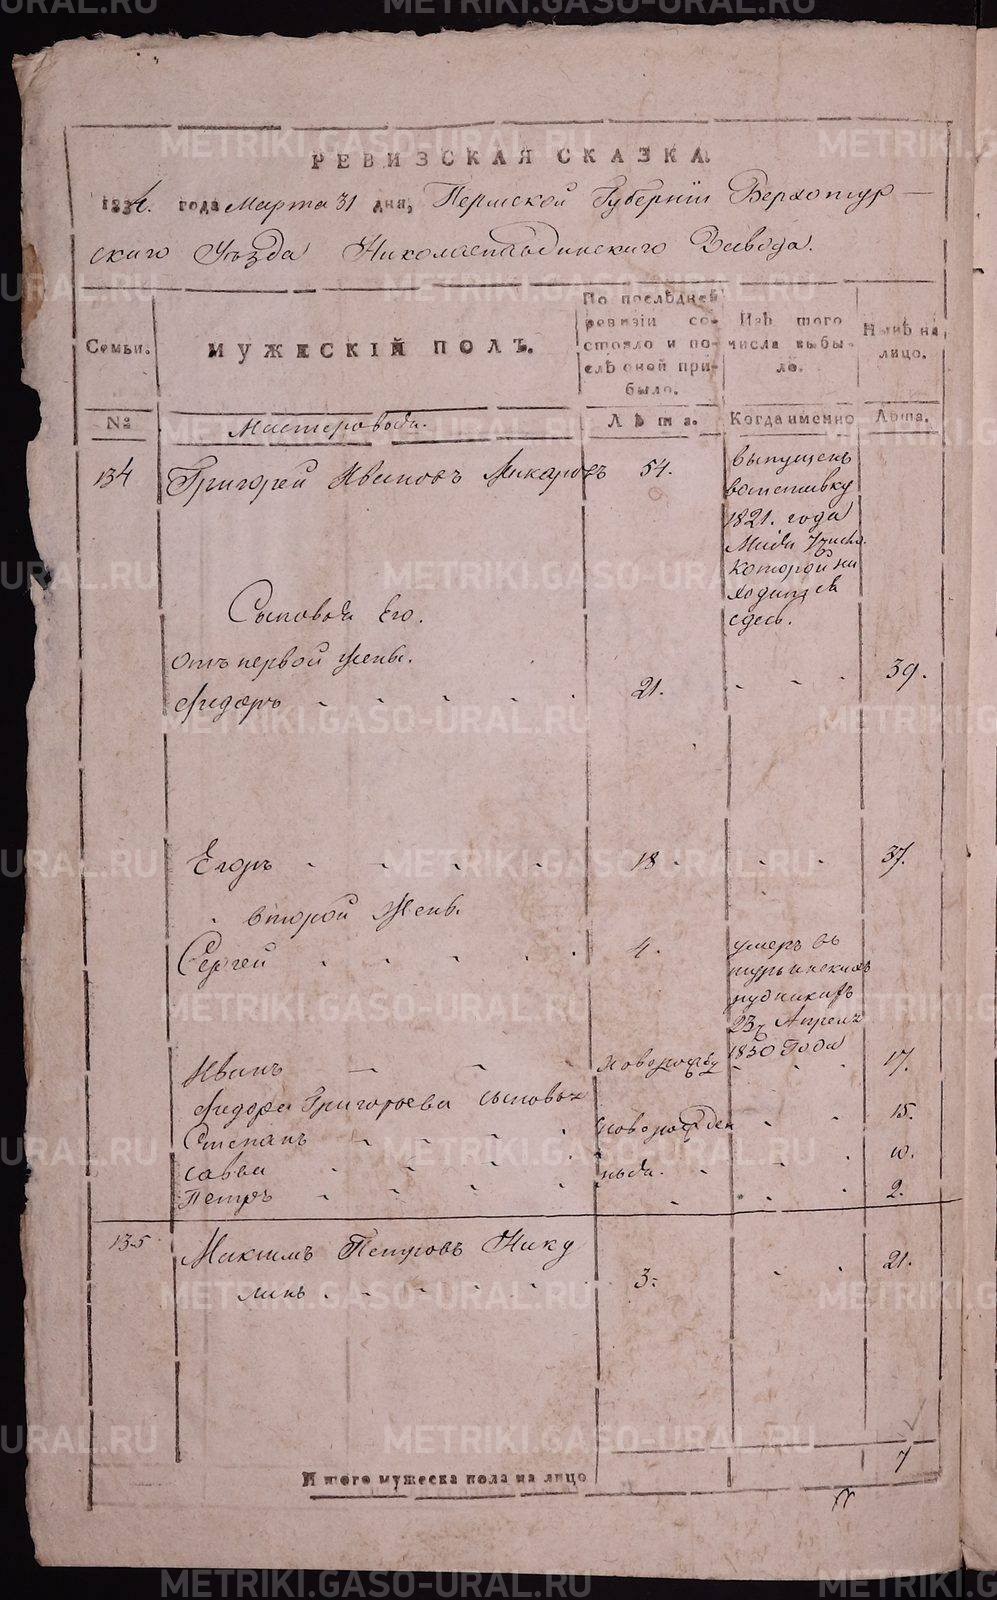 РЕВИЗСКАЯ СКАЗКА.
1834. года Марта 31 дня, Пермской Губерніи Верхотур-
скаго Уѣзда Николаепавдинскаго Завода.
Семьи.
МУЖЕСКІЙ ПОЛЪ.
По послѣдней ревизіи состояло и послѣ оной прибыло.
Изъ того числа выбыло.
Нынѣ на лицо.
№
Мастеровыя.
Лѣта.
Когда именно
Лѣта.
134 Григорей Ивановъ Макаровъ 54.
выпущенъ
вотставку
1821. года
Маія 7 числа
которой на
ходится
сдесь.
Сыновья Его.
Отъ первой жены.
Федоръ 21. 39.
Егоръ 18 37.
второй Жены.
Сергей 4.
умеръ въ
турьинскихъ
рудникахъ
23 Апреля
1830 Года
Иванъ 17.
Федора Григорьева сыновья
Степанъ новорожден 15.
Савва ныя. 10.
Петръ 2.
135 Максимъ Петровъ Нику
линъ 3. 21.
Итого мужеска пола на лицо 7
METRIKI.GASO-URAL.RU